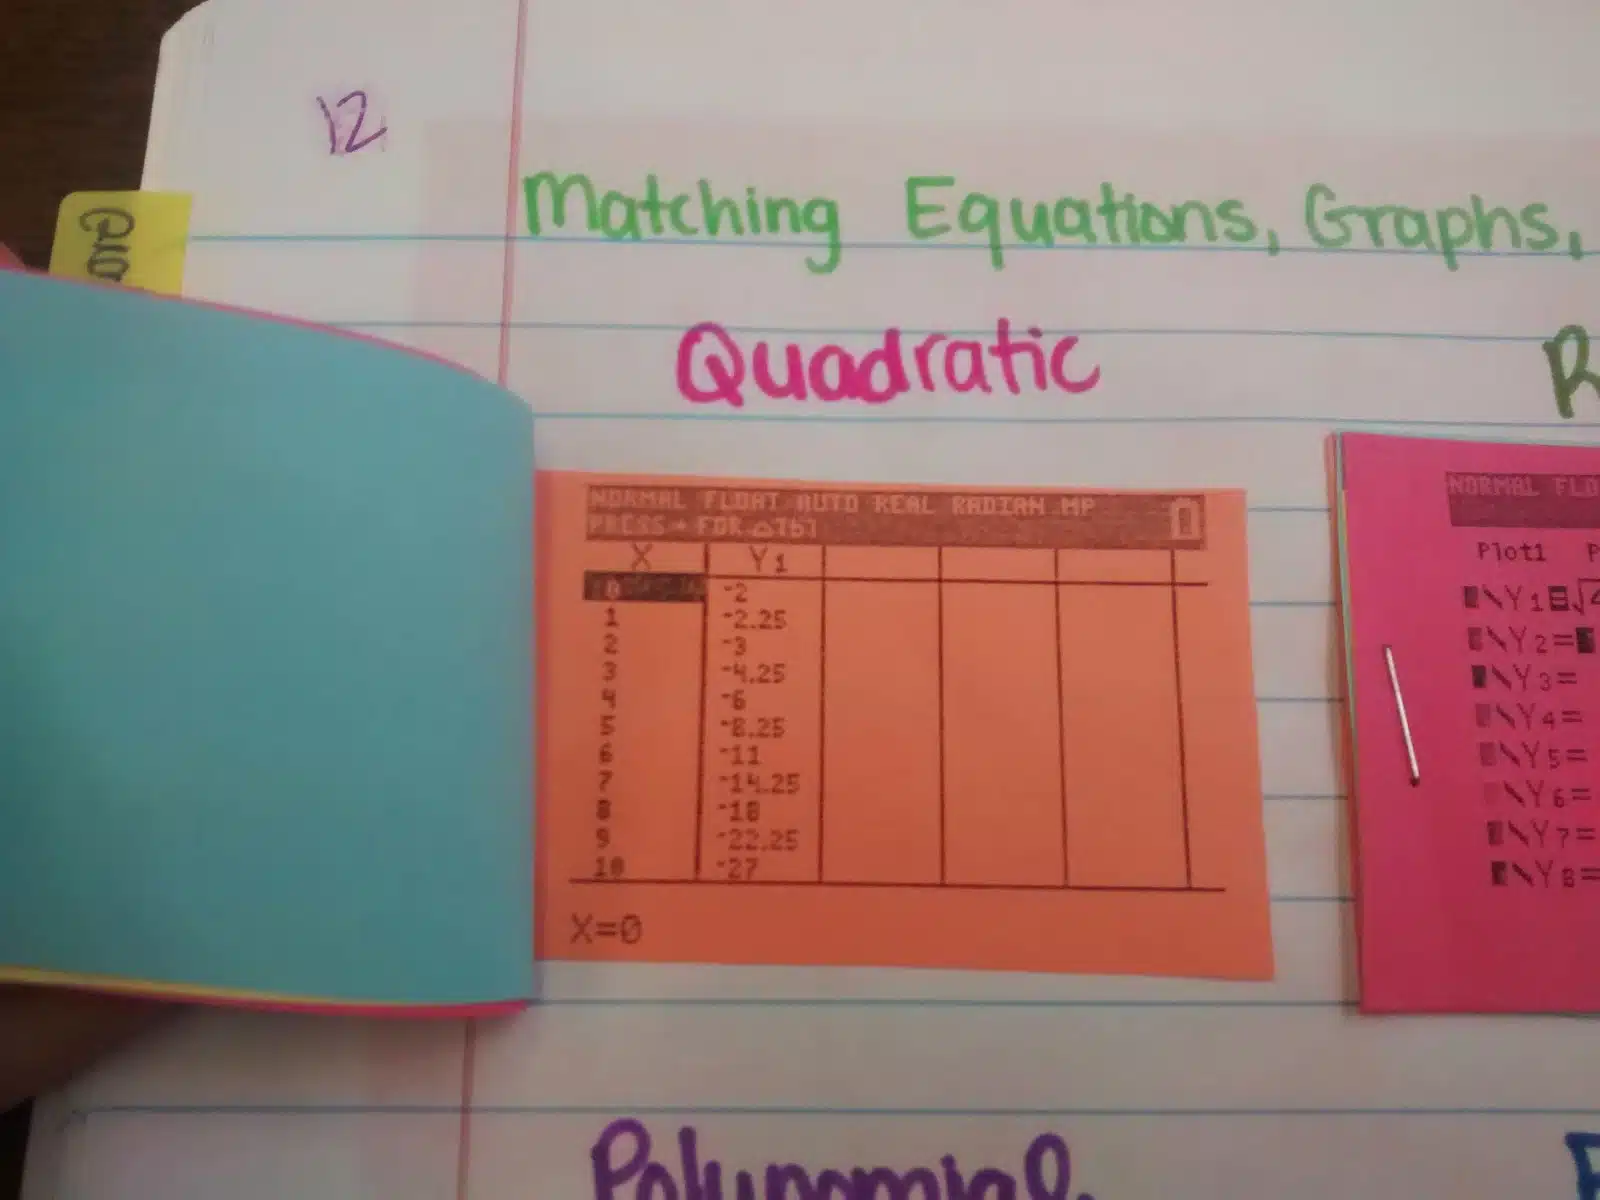 12
Matching Equations, Graphs,
Quadratic
NORMAL FLOAT AUTO REAL RADIAN MP
PRESS + FOR △Tbl
X Y1
0 -2
1 -2.25
2 -3
3 -4.25
4 -6
5 -8.25
6 -11
7 -14.25
8 -18
9 -22.25
10 -27
X=0
NORMAL FLO
Plot1 P
\Y1=√4
\Y2=
\Y3=
\Y4=
\Y5=
\Y6=
\Y7=
\Y8=
Polynomial